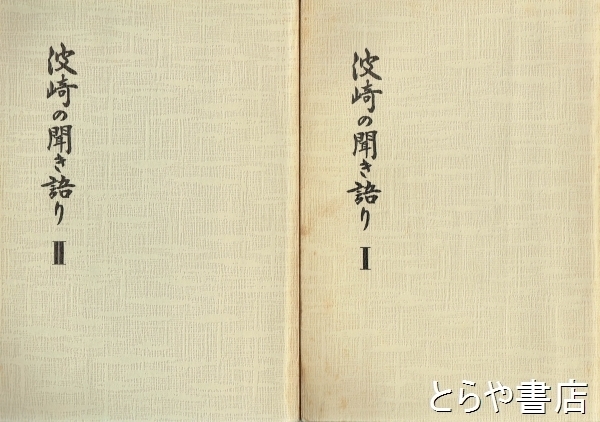 波崎の聞き語り Ⅰ
波崎の聞き語り Ⅱ
とらや書店